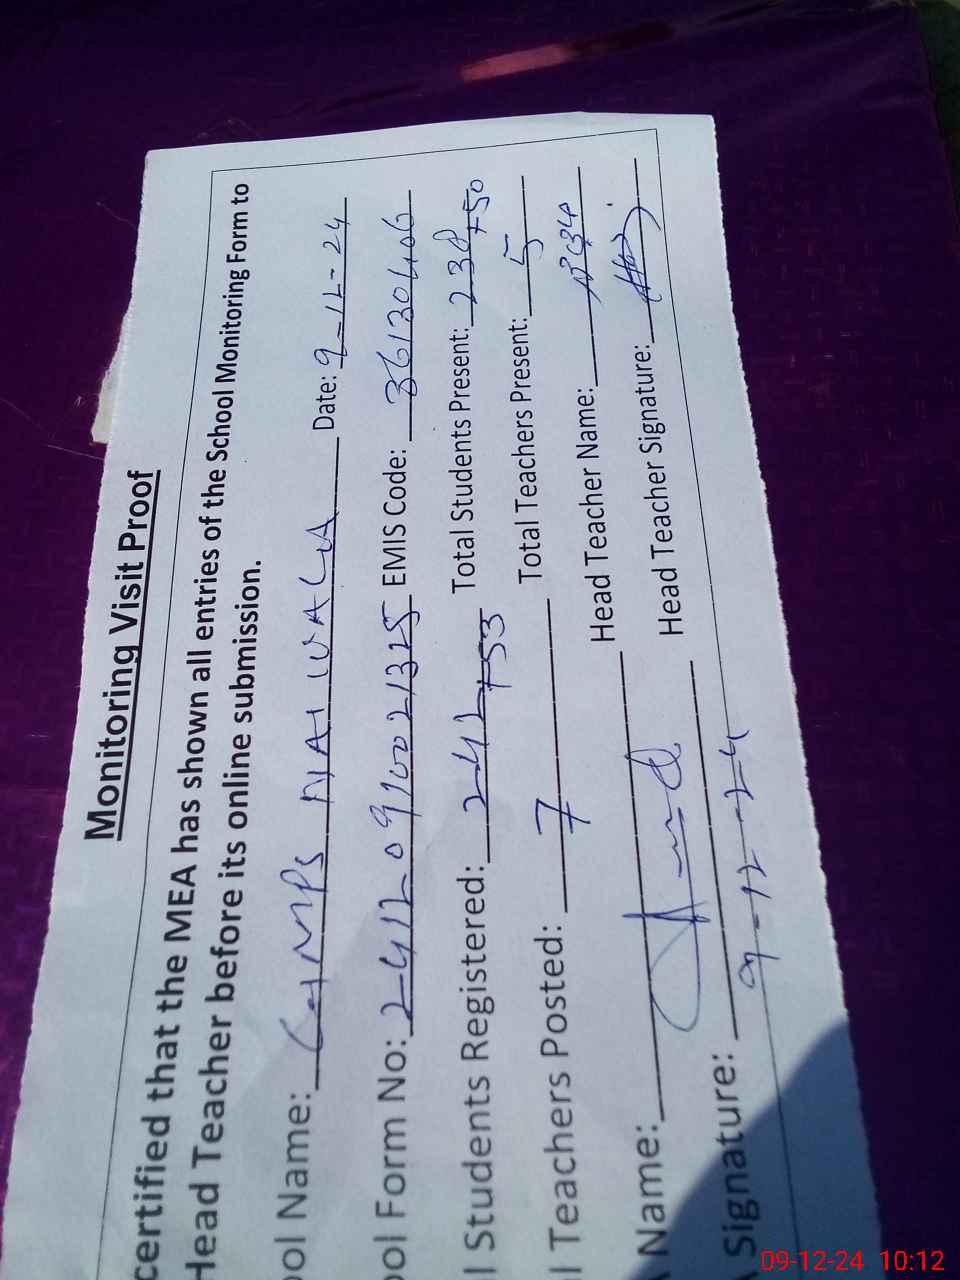 Monitoring Visit Proof
certified that the MEA has shown all entries of the School Monitoring Form to
Head Teacher before its online submission.
ool Name: GMPS NAIWALA Date: 9-12-24
ool Form No: 24120910021325 EMIS Code: 36130406
l Students Registered: 242+53 Total Students Present: 238+50
l Teachers Posted: 7 Total Teachers Present: 5
Name: Head Teacher Name:
Signature: Head Teacher Signature:
9-12-24
09-12-24 10:12